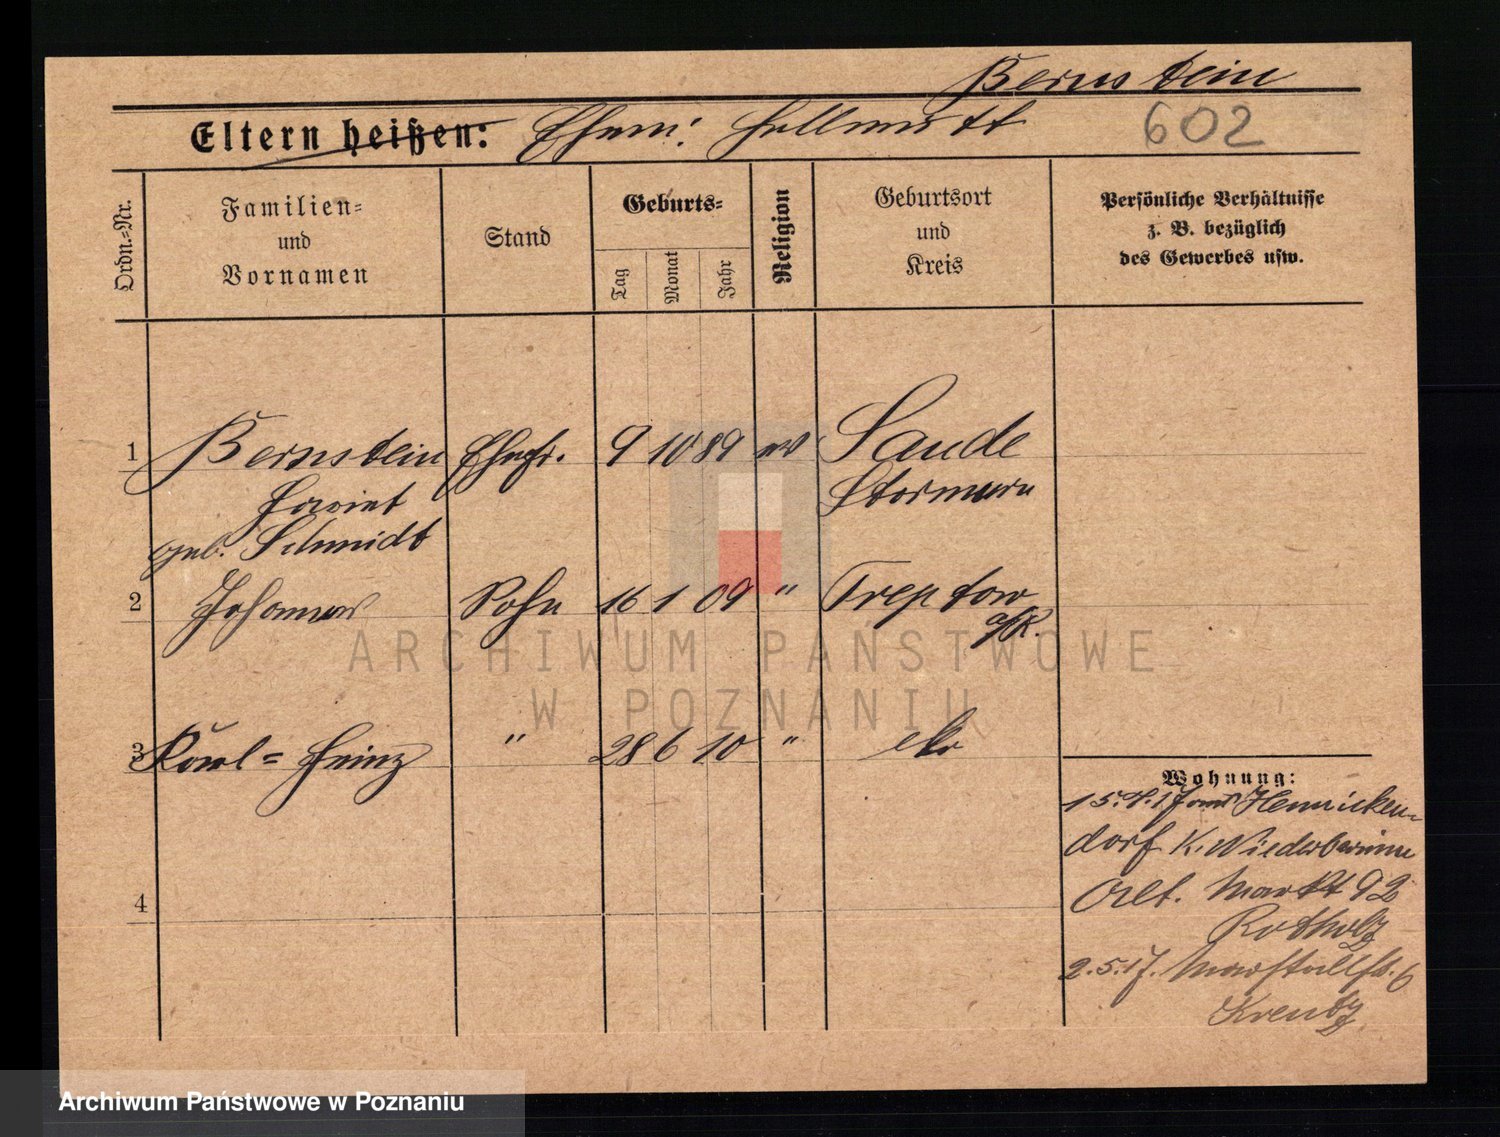 Bernstein
Eltern heißen: Ehem: Hellmutt 602
Ordn.=Nr.
Familien=
und
Vornamen
Stand
Geburts=
Tag
Monat
Jahr
Religion
Geburtsort
und
Kreis
Persönliche Verhältnisse
z. B. bezüglich
des Gewerbes usw.
1 Bernstein Ehefr. 9 10 89 ev Sande
Stormarn
geb. Schmidt
2 Johannes Sohn 16 1 09 " Treptow
a/R.
3 Karl=Heinz " 28 6 10 "
Wohnung:
15.4.17 aus Hennicken=
dorf K. Niederbarnim
Alt. Markt 92
Rotholz
2.5.17. Marstallstr. 6
Kreutz
4
ARCHIWUM PAŃSTWOWE
W POZNANIU
Archiwum Państwowe w Poznaniu